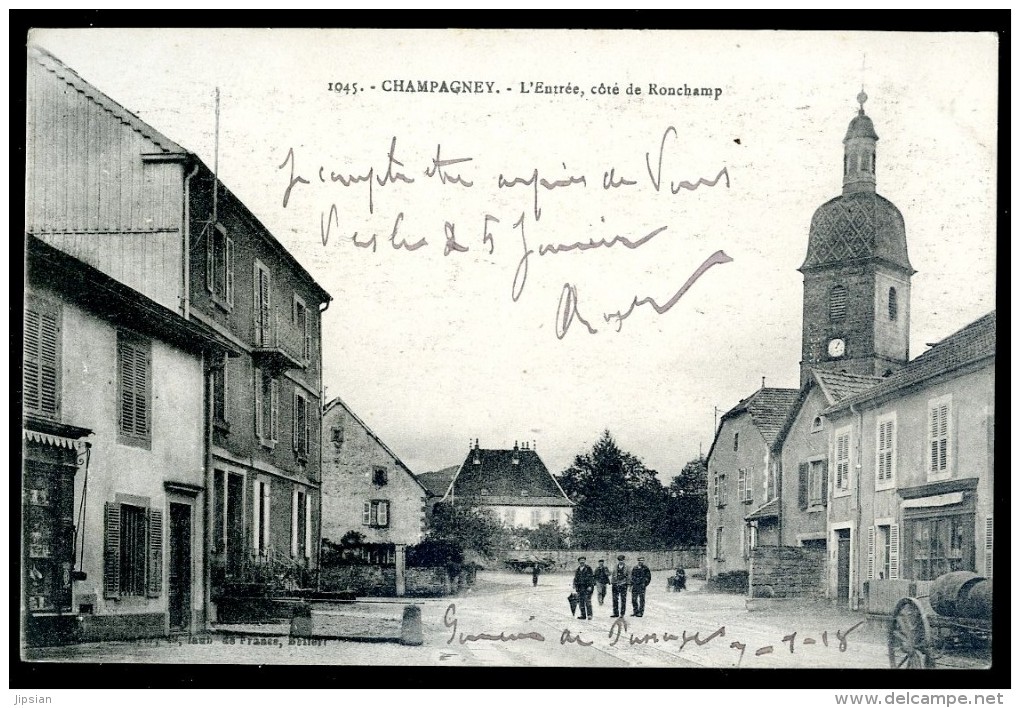 1045. - CHAMPAGNEY. - L'Entrée, côté de Ronchamp
Je compte être auprès de Vous
Vers le 5 Janvier
de France, Belfort
de Passage 7-1-18
jipsian
www.delcampe.net